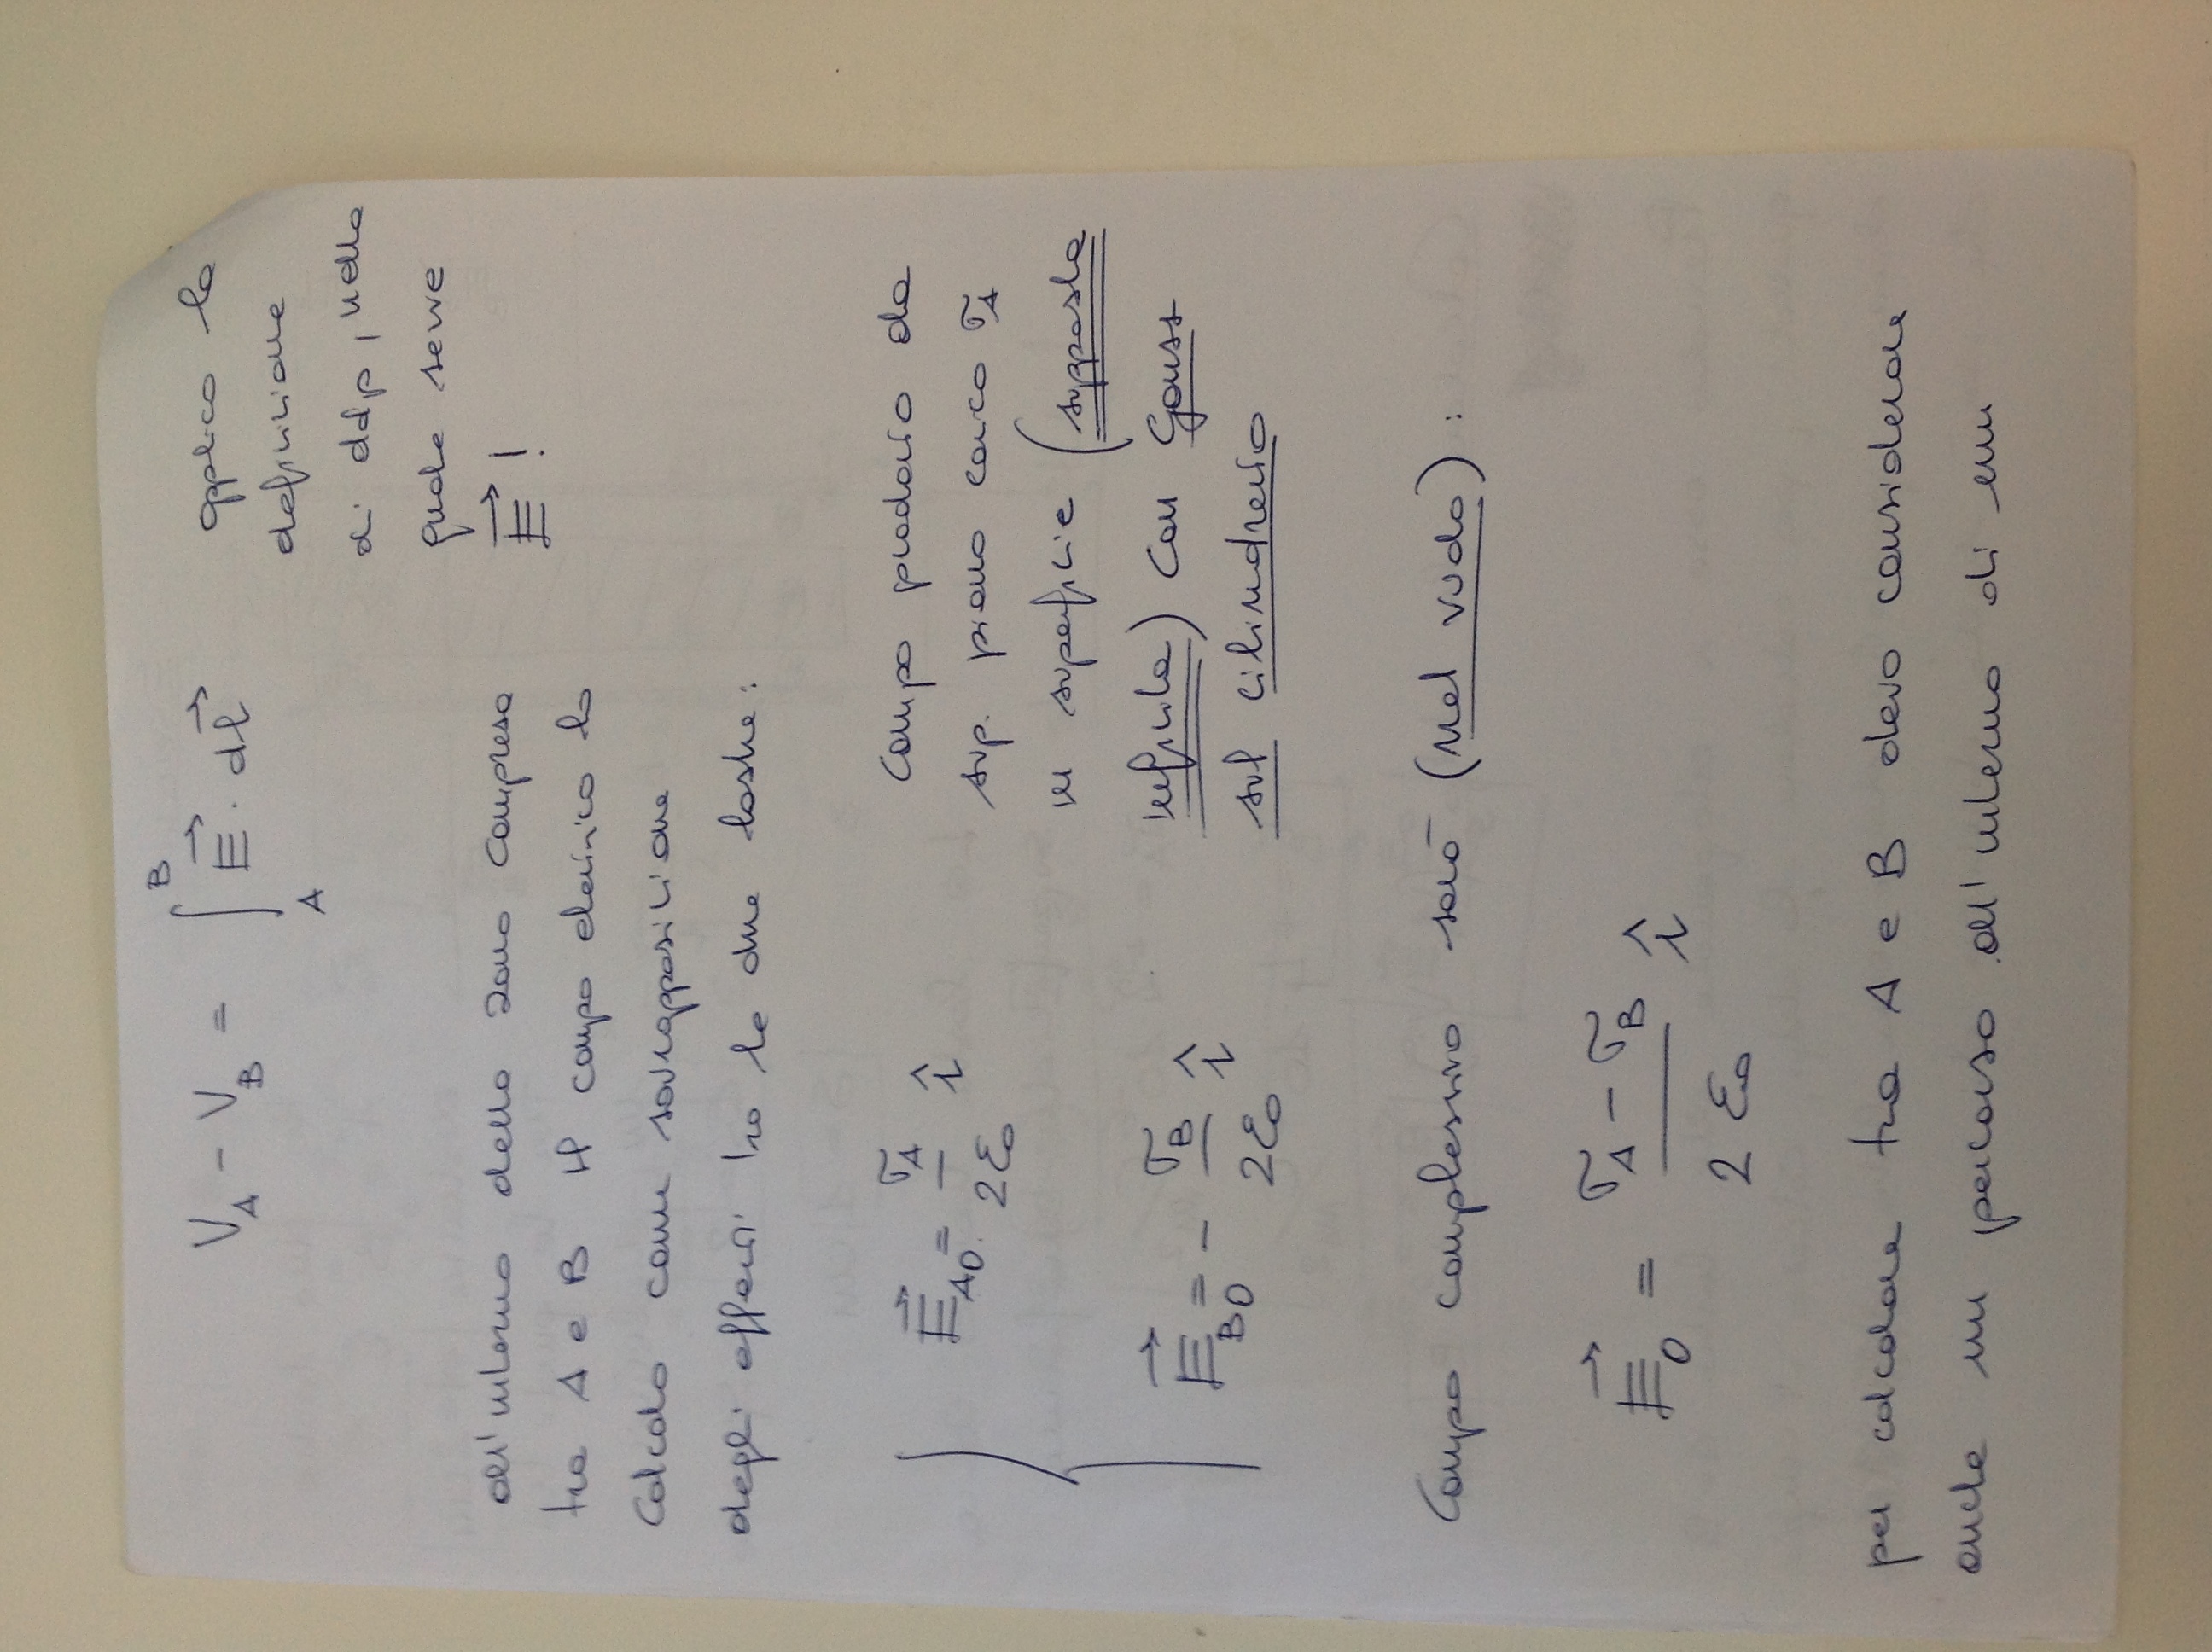 V_A - V_B = ∫_A^B E⃗ · dl⃗
applico la
definizione
di ddp, nella
quale serve
E⃗ !
all'interno della zona compresa
tra A e B il campo elettrico lo
calcolo come sovrapposizione
degli effetti tra le due lastre:
E⃗_A0 = σ_A / 2ε₀ î
E⃗_B0 = - σ_B / 2ε₀ î
Campo prodotto da
sup. piana carica σ_A
in superficie (supposta
infinita) con Gauss
sul cilindretto
Campo complessivo sarà (nel vuoto) :
E⃗_0 = σ_A - σ_B / 2 ε₀ î
per calcolare tra A e B devo considerare
anche un percorso all'interno di